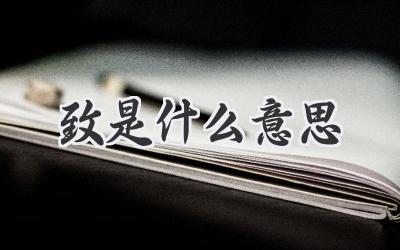 致是什么意思